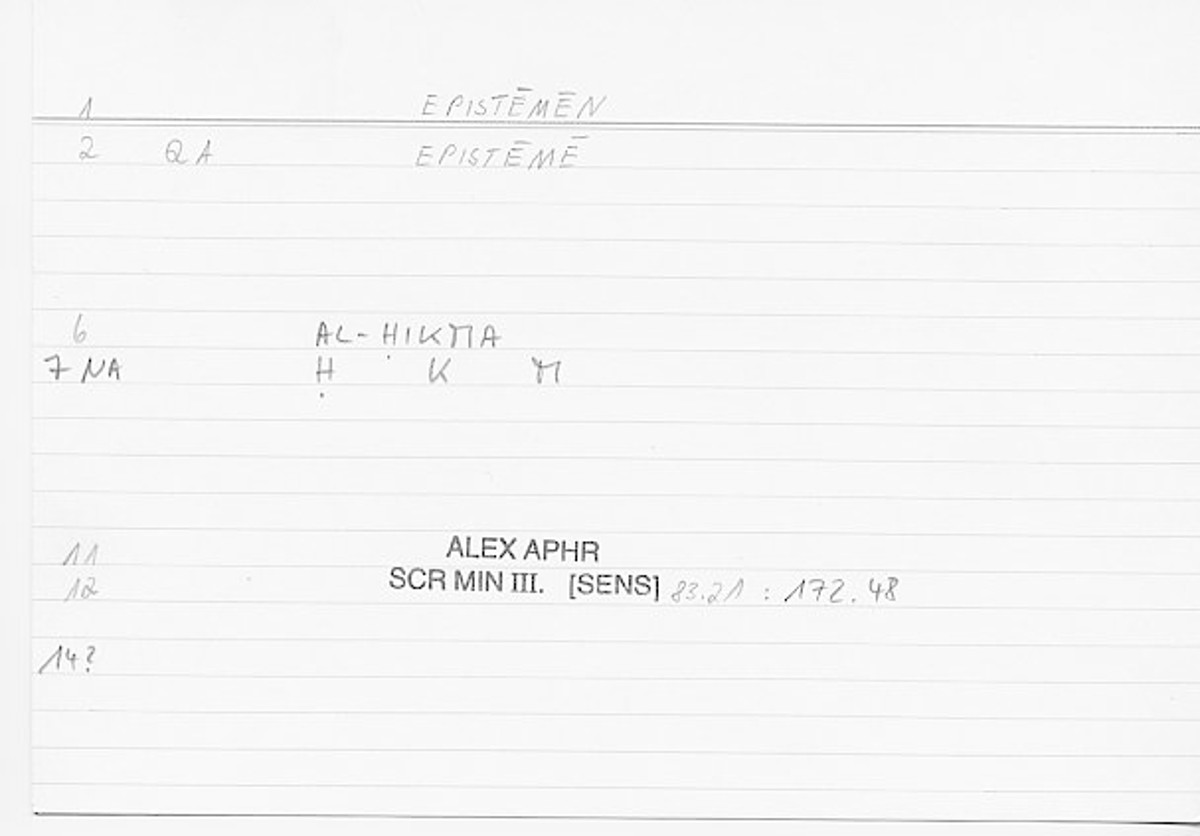 1 EPISTĒMĒN
2 QA EPISTĒMĒ
6 AL-ḤIKMA
7 NA Ḥ K M
11 ALEX APHR
12 SCR MIN III. [SENS] 83.21 : 172.48
14?